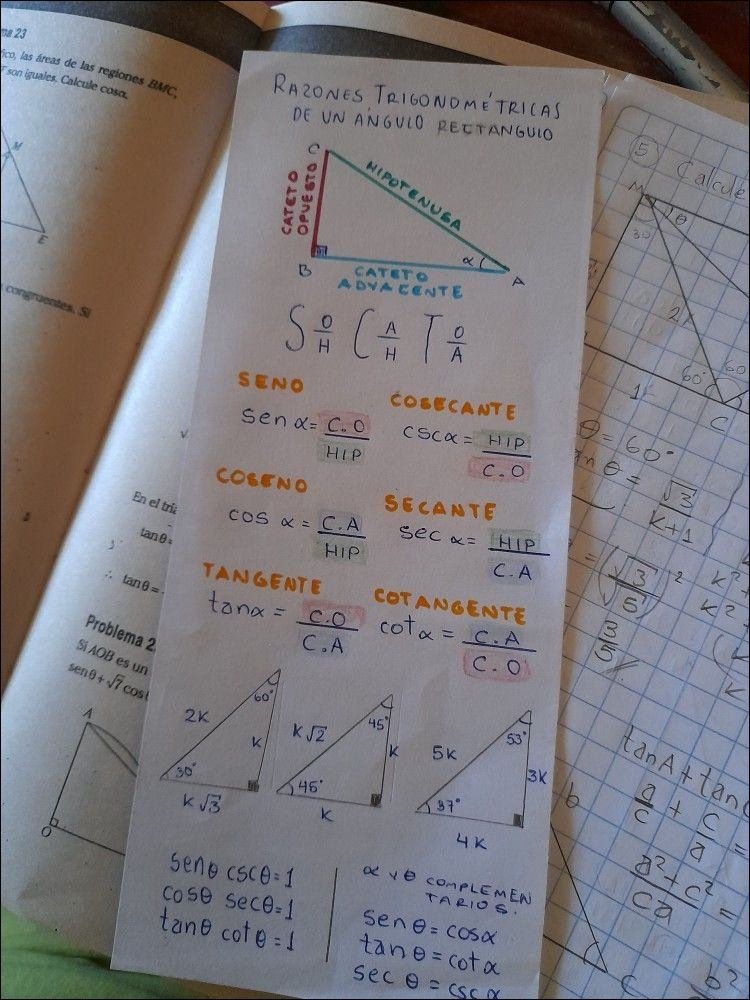 na 23
fico, las áreas de las regiones BMC,
T son iguales. Calcule cosα.
M
E
congruentes. Si
En el trián
tanθ=
∴ tanθ=
Problema 2
Si AOB es un
senθ+√7cos
A
O
RAZONES TRIGONOMÉTRICAS
DE UN ÁNGULO RECTÁNGULO
C
CATETO
OPUESTO
HIPOTENUSA
B
α
A
CATETO
ADYACENTE
S O/H C A/H T O/A
SENO
sen α = C.O/HIP
COSECANTE
csc α = HIP/C.O
COSENO
cos α = C.A/HIP
SECANTE
sec α = HIP/C.A
TANGENTE
tan α = C.O/C.A
COTANGENTE
cot α = C.A/C.O
60°
2K
K
30°
K√3
45°
K√2
K
45°
K
53°
5K
3K
37°
4K
senθ cscθ=1
cosθ secθ=1
tanθ cotθ=1
α y θ COMPLEMEN
TARIOS.
senθ = cosα
tanθ = cotα
sec θ = csc α
5 Calcule
M
θ
30
2
60
60°
1
C
θ = 60°
tan θ = √3/K+1
= (√3/5)²
3/5
K²+
K²+
tanA + tanC
a/c + c/a =
a²+c²/ca =
b
C